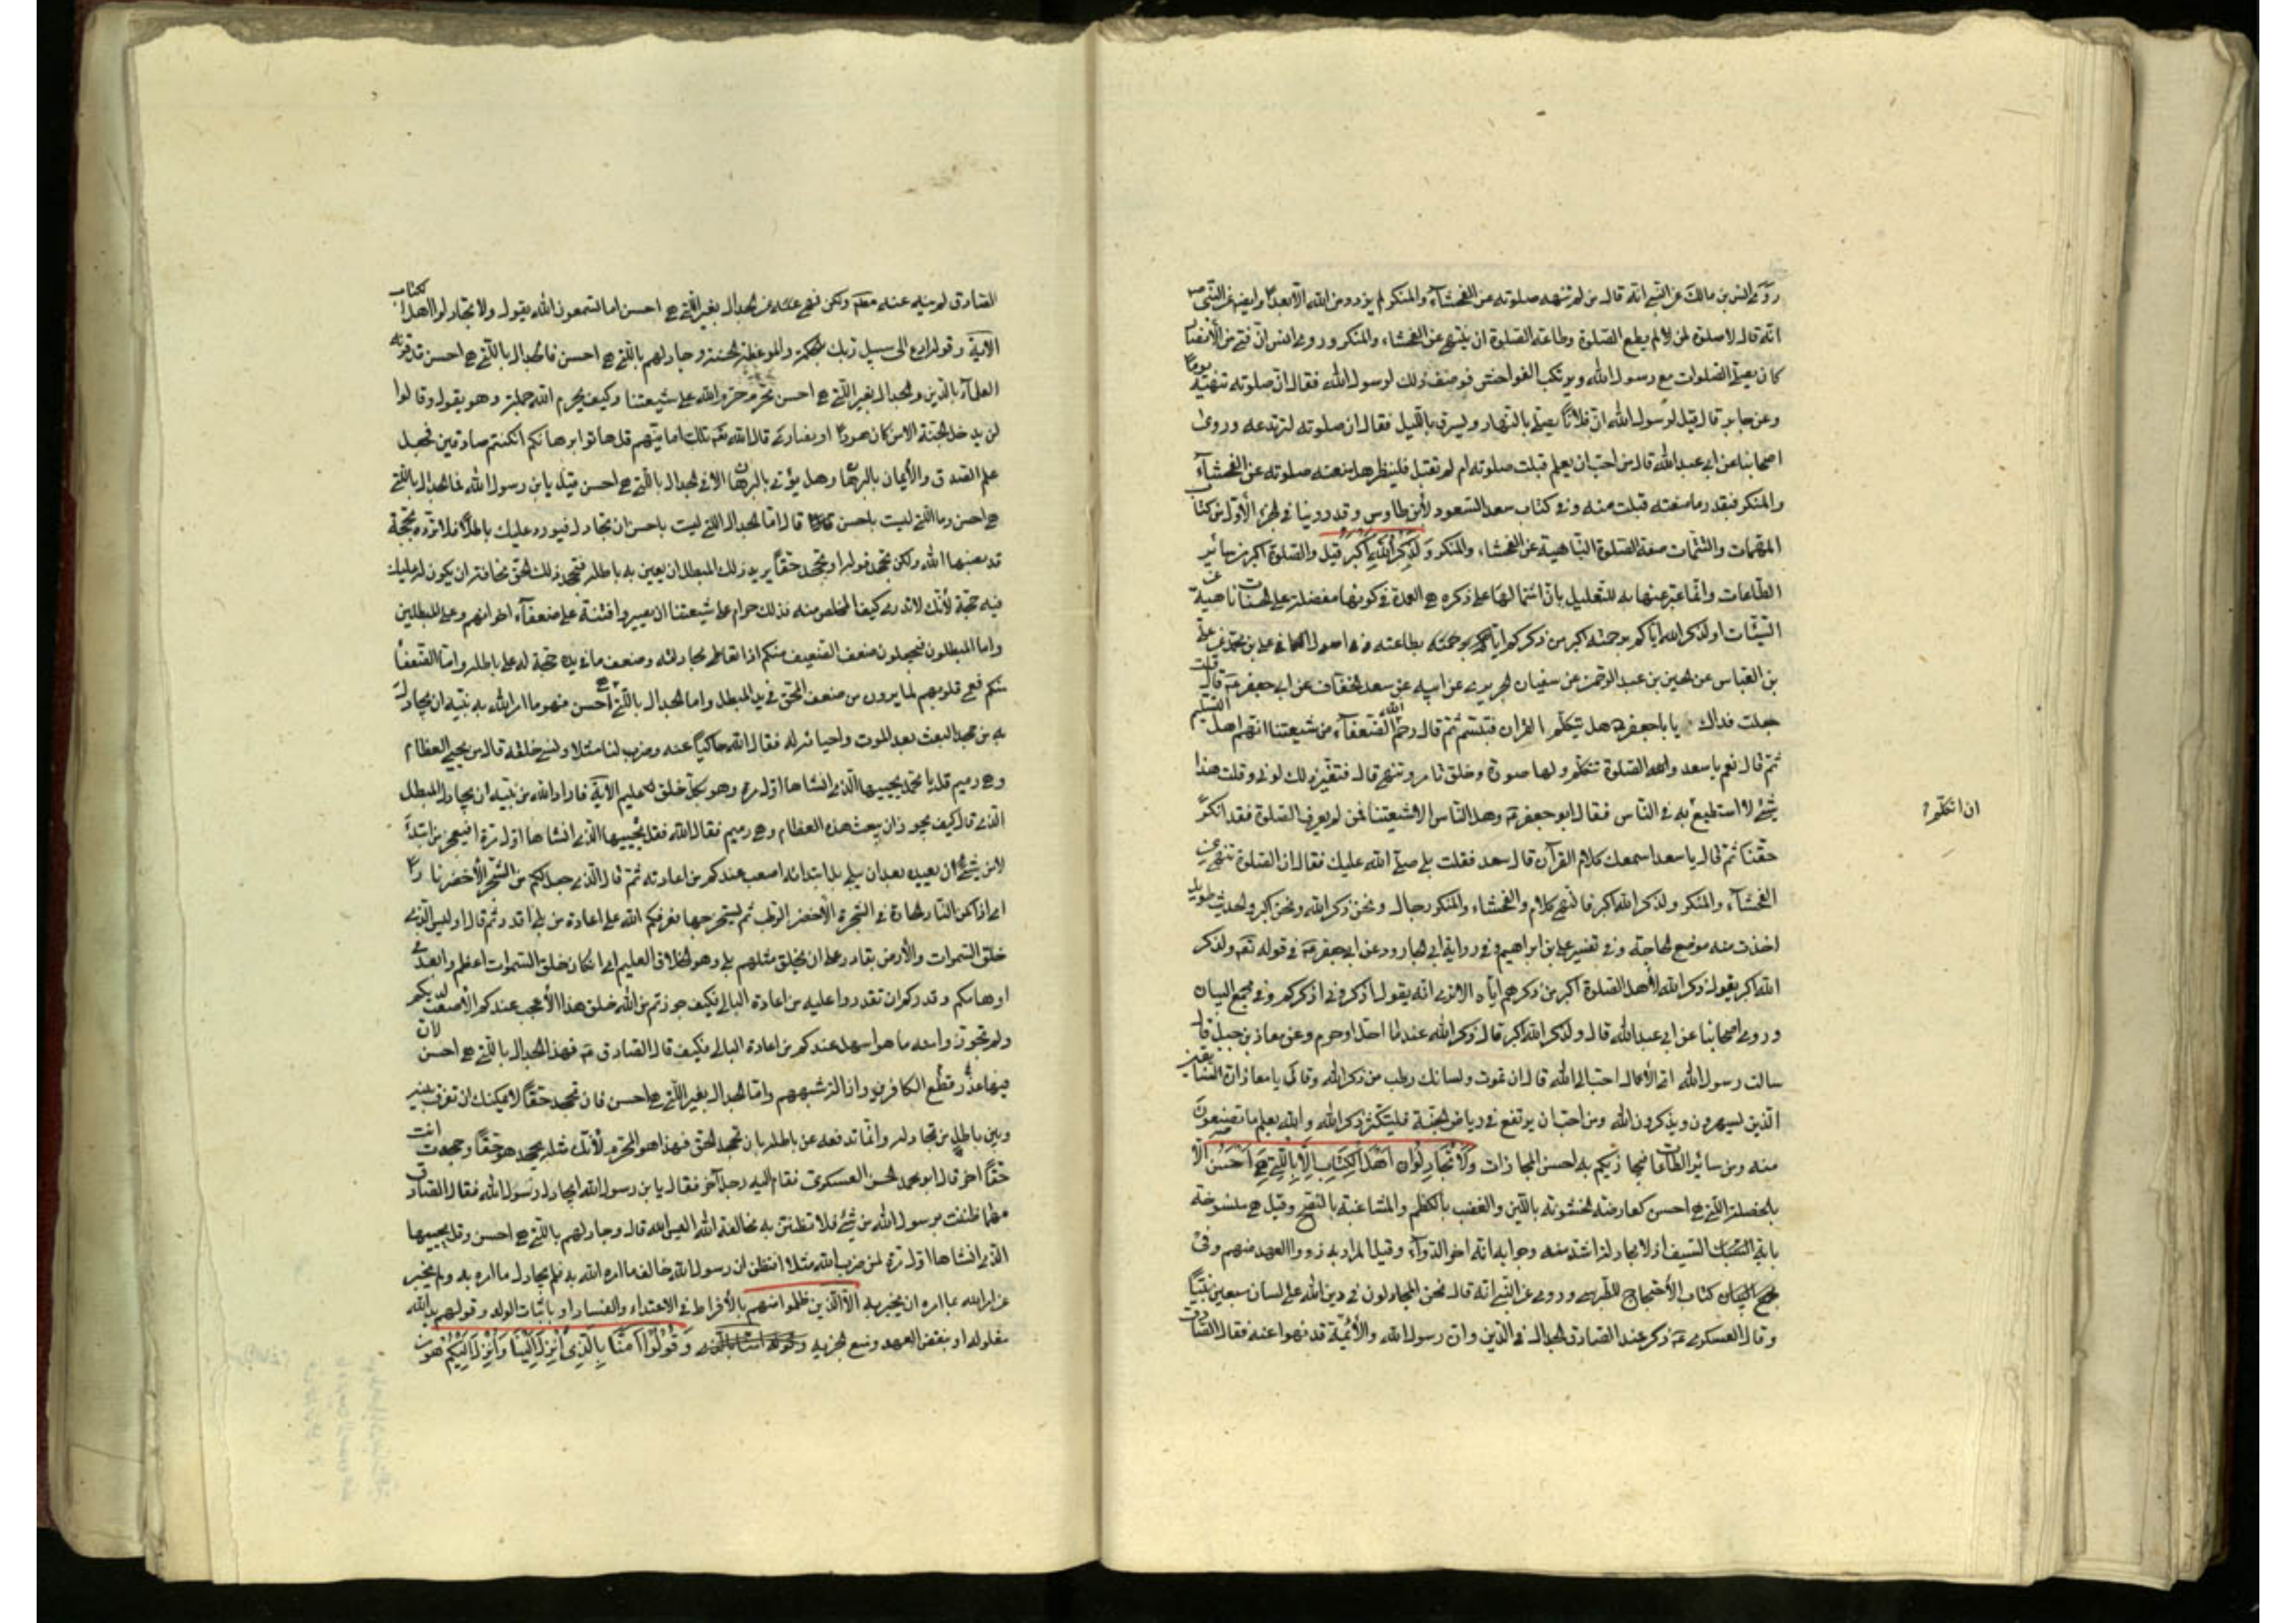 روى انس بن مالك عن النبي انه قال من لم تنهه صلوته عن الفحشآء والمنكر لم يزدد من الله الا بعدا وايضا عن النبي ص
انه قال لا صلوة لمن لم يطع الصلوة وطاعة الصلوة ان ينتهي عن الفحشاء والمنكر وروى انس ان فتى من الأنصار
كان يصلي الصلوات مع رسول الله ويرتكب الفواحش فوصف ذلك لرسول الله فقال ان صلوته تنهيه يوما
وعن جابر قال قيل لرسول الله ان فلانا يصلي بالنهار ويسرق بالليل فقال ان صلوته لتردعه وروى
اصحابنا عن ابي عبد الله قال من احب ان يعلم قبلت صلوته ام لم تقبل فلينظر هل منعته صلوته عن الفحشآء
والمنكر فبقدر ما منعته قبلت منه وفي كتاب سعد السعود لأبن طاوس وقد روينا في الجزء الأول من كتاب
المهمات والتتمات صفة الصلوة الناهية عن الفحشاء والمنكر وَلَذِكْرُ اللَّهِ اَكْبَرُ قيل والصلوة اكبر من سائر
الطاعات وانما عبر عنها به للتعليل بان اشتمالها على ذكره هي العمدة في كونها مفضلة على الحسنات ناهية عن
السيئات او لذكر الله اياكم برحمته اكبر من ذكركم اياه بطاعته وفي اصول الكافي علي بن محمد عن علي
بن العباس عن الحسين بن عبد الرحمن عن سفيان الحريري عن ابيه عن سعد الخفاف عن ابي جعفر ع قال قلت
جعلت فداك يا باجعفر هل يتكلم القران فتبسم ثم قال رحم الله الضعفآء من شيعتنا انهم اهل التسليم
ثم قال نعم يا سعد والصلوة تتكلم ولها صورة وخلق تامر وتنهى قال فتغير لذلك لوني وقلت هذا
شئ لا استطيع به في الناس فقال ابو جعفر ع وهل الناس الا شيعتنا فمن لم يعرف الصلوة فقد انكر
ان اتكلم
حقنا ثم قال يا سعد اسمعك كلام القرآن قال سعد فقلت بلى صلى الله عليك فقال ان الصلوة تنهى عن
الفحشآء والمنكر ولذكر الله اكبر فالنهي كلام والفحشاء والمنكر رجال ونحن ذكر الله ونحن اكبر والحديث طويل
اخذت منه موضع الحاجة وفي تفسير علي بن ابراهيم وفي رواية ابي الجارود عن ابي جعفر ع في قوله تعم ولذكر
الله اكبر يقول ذكر الله لأهل الصلوة اكبر من ذكرهم اياه الا ترى انه يقول اذكروني اذكركم وفي مجمع البيان
وروى اصحابنا عن ابي عبد الله قال ولذكر الله اكبر قال ذكر الله عند ما احل او حرم وعن معاذ بن جبل قال
سالت رسول الله اي الأعمال احب الى الله قال ان تموت ولسانك رطب من ذكر الله وقال يا معاذ ان السابقين
الذين يسهرون ويذكرون الله ومن احب ان يرتفع في رياض الجنة فليكثر ذكر الله والله يعلم ما تصنعون
منه ومن سائر الطاعات فيجازيكم به احسن المجازات وَلَا تُجَادِلُوا اَهْلَ الْكِتَابِ اِلَّا بِالَّتِي هِيَ اَحْسَنُ الا
بالخصلة التي هي احسن كمعارضة الخشونة باللين والغضب بالكظم والمشاغبة بالنصح وقيل هي منسوخة
باية السيف اذ لا مجادلة اشد منه وجوابه انه اخر الدوآء وقيل المراد به ذووا العهد منهم وفي
كتاب الأحتجاج للطبرسي وروى عن النبي انه قال نحن المجادلون في دين الله على لسان سبعين نبيا
وقال العسكري ع ذكر عند الصادق الجدال في الدين وان رسول الله والأئمة قد نهوا عنه فقال الصادق
الصادق لم ينه عنه مطلقا ولكن نهى عنه عن الجدال بغير التي هي احسن اما تسمعون الله يقول ولا تجادلوا اهل الكتاب
الآية وقوله ادع الى سبيل ربك بالحكمة والموعظة الحسنة وجادلهم بالتي هي احسن فالجدال بالتي هي احسن قد قرنه
العلمآء بالدين والجدال بغير التي هي احسن محرم حرمه الله على شيعتنا وكيف يحرم الله جملة وهو يقول وقالوا
لن يدخل الجنة الا من كان هودا او نصارى قال الله تعم تلك امانيهم قل هاتوا برهانكم ان كنتم صادقين فجعل
علم الصدق والأيمان بالبرهان وهل يؤتى بالبرهان الا في الجدال بالتي هي احسن قيل يا بن رسول الله فما الجدال بالتي
هي احسن وما التي ليست باحسن قال اما الجدال التي ليست باحسن ان تجادل فيورد عليك باطلا فلا ترده بحجة
قد نصبها الله ولكن تجحد قوله او تجحد حقا يريد ذلك المبطل ان يعين به باطله فتجحد ذلك الحق مخافة ان يكون له عليك
فيه حجة لأنك لا تدري كيف المخلص منه فذلك حرام على شيعتنا ان يصيروا فتنة على ضعفآء اخوانهم وعلى المبطلين
واما المبطلون فيجعلون ضعف الضعيف منكم اذا تعاطى مجادلته وضعف ما في يده حجة له على باطله واما الضعفآء
منكم فغم قلوبهم لما يرون من ضعف المحق في يد المبطل واما الجدال بالتي هي احسن فهو ما امر الله به نبيه ان يجادل
به من جحد البعث بعد الموت واحيائه له فقال الله حاكيا عنه وضرب لنا مثلا ونسي خلقه قال من يحيي العظام
وهي رميم قل يا محمد يحييها الذي انشاها اول مرة وهو بكل خلق عليم الآية فاراد الله من نبيه ان يجادل المبطل
الذي قال كيف يجوز ان يبعث هذه العظام وهي رميم فقال الله فقل يحييها الذي انشاها اول مرة افيعجز من ابتدأ
لا من شئ ان يعيده بعد ان يبلى بل ابتدائه اصعب عندكم من اعادته ثم قال الذي جعل لكم من الشجر الأخضر نارا
اي اذا كمن النار الحارة في الشجرة الأخضر الرطب ثم يستخرجها فعرفكم الله على اعادة من بلى اقدر ثم قال اوليس الذي
خلق السموات والأرض بقادر على ان يخلق مثلهم بلى وهو الخلاق العليم اي اذا كان خلق السموات اعظم وابعد في
اوهامكم وقدركم ان تقدروا عليه من اعادة البالي فكيف جوزتم من الله خلق هذا الأعجب عندكم الأصعب لديكم
ولم تجوزوا منه ما هو اسهل عندكم من اعادة البالي فكيف قال الصادق ع فهذا الجدال بالتي هي احسن لان
فيها عذر وقطع الكافرين وازالة شبههم واما الجدال بغير التي هي احسن فان تجحد حقا لا يمكنك ان تفرق بينه
وبين باطل من تجادله وانما تدفعه عن باطله بان تجحد الحق فهذا هو المحرم لأنك مثله جحد هو حقا وجحدت انت
حقا اخر قال ابو محمد الحسن العسكري فقام اليه رجل آخر فقال يا بن رسول الله ايجادل رسول الله فقال الصادق
مهما ظننت برسول الله من شئ فلا تظنن به مخالفة الله اليس الله قال وجادلهم بالتي هي احسن وقل يحييها
الذي انشاها اول مرة لمن ضرب الله مثلا افتظن ان رسول الله خالف ما امره الله به فلم يجادل ما امره به ولم يخبر
عن امر الله بما امره ان يخبر به الا الذين ظلموا منهم بالأفراط في الاعتداء والفساد او باثبات الولد وقولهم يد الله
مغلولة او بنقض العهد ومنع الجزية وَقُولُوا اٰمَنَّا بِالَّذِي اُنْزِلَ اِلَيْنَا وَاُنْزِلَ اِلَيْكُمْ هو من